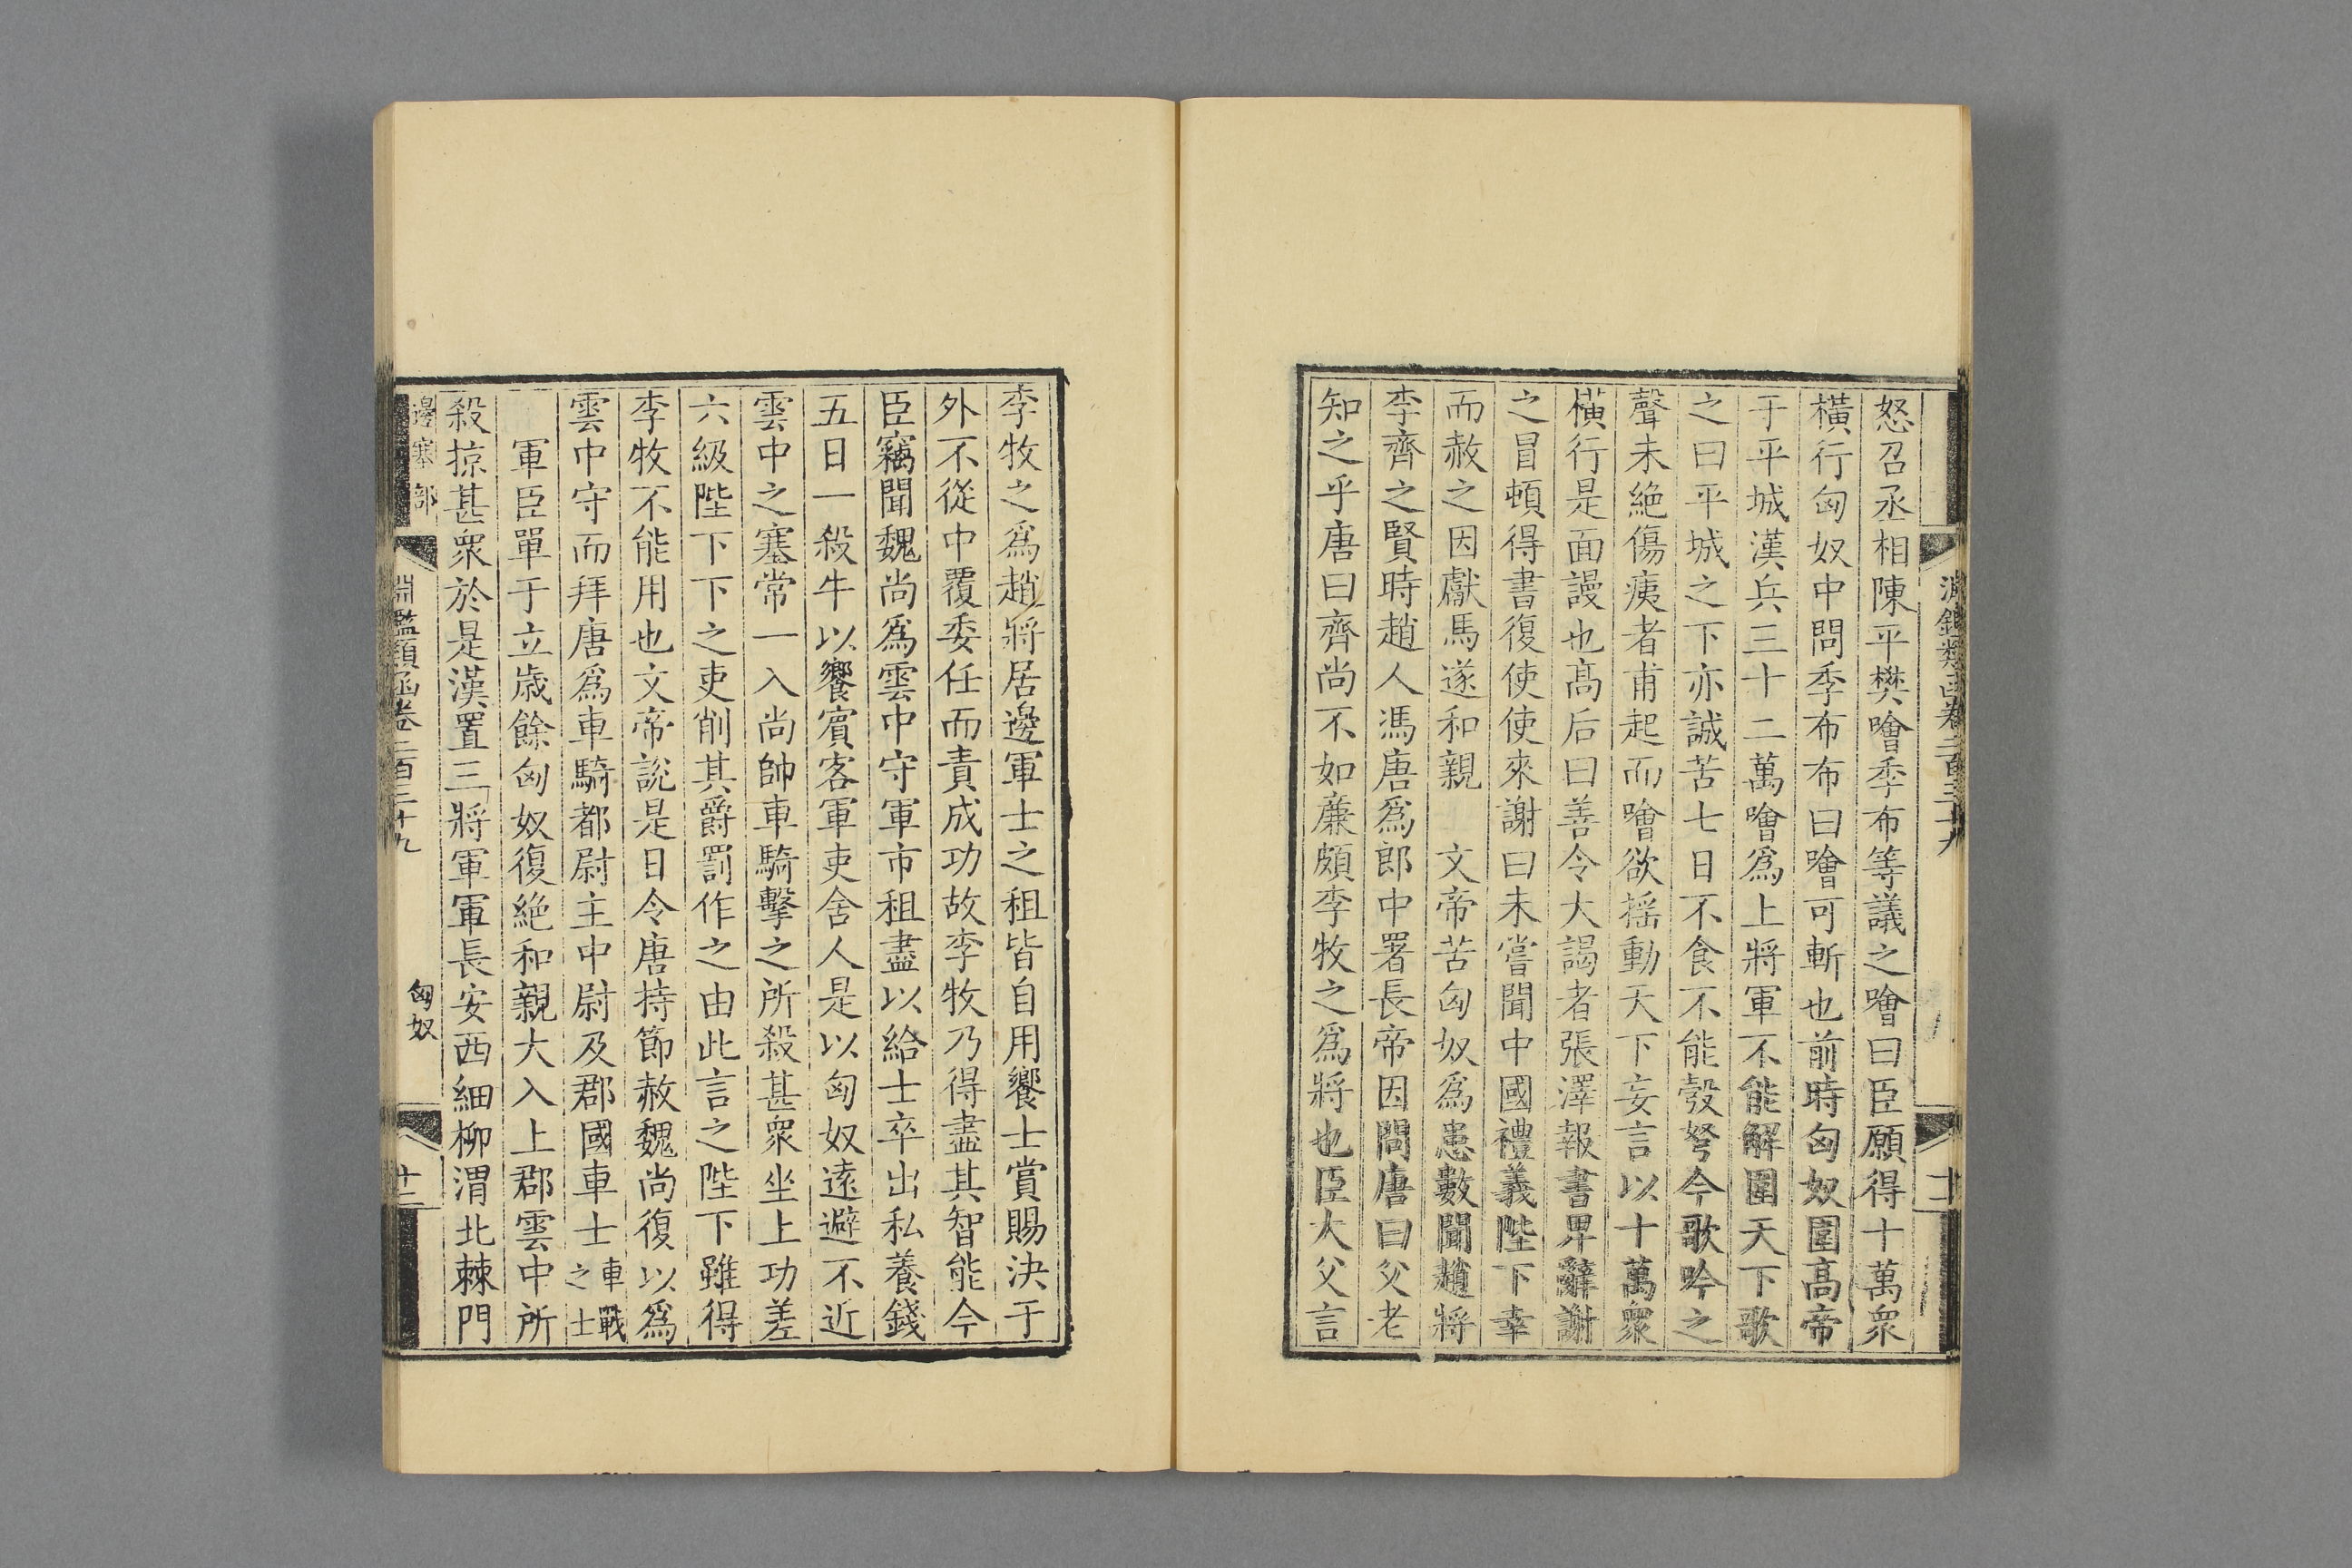 怒召丞相陳平樊噲季布等議之噲曰臣願得十萬衆
橫行匈奴中問季布布曰噲可斬也前時匈奴圍高帝
于平城漢兵三十二萬噲爲上將軍不能解圍天下歌
之曰平城之下亦誠苦七日不食不能彀弩今歌吟之
聲未絶傷痍者甫起而噲欲搖動天下妄言以十萬衆
橫行是面謾也高后曰善令大謁者張澤報書畀辭謝
之冒頓得書復使使來謝曰未嘗聞中國禮義陛下幸
而赦之因獻馬遂和親　文帝苦匈奴爲患數聞趙將
李齊之賢時趙人馮唐爲郎中署長帝因問唐曰父老
知之乎唐曰齊尚不如廉頗李牧之爲將也臣大父言
李牧之爲趙將居邊軍士之租皆自用饗士賞賜決于
外不從中覆委任而責成功故李牧乃得盡其智能今
臣竊聞魏尚爲雲中守軍市租盡以給士卒出私養錢
五日一殺牛以饗賓客軍吏舍人是以匈奴遠避不近
雲中之塞常一入尚帥車騎擊之所殺甚衆坐上功差
六級陛下下之吏削其爵罰作之由此言之陛下雖得
李牧不能用也文帝說是日令唐持節赦魏尚復以爲
雲中守而拜唐爲車騎都尉主中尉及郡國車士車戰之士
軍臣單于立歲餘匈奴復絶和親大入上郡雲中所
殺掠甚衆於是漢置三將軍軍長安西細柳渭北棘門
邊塞部
淵鑑類函卷二百三十九
匈奴
十二